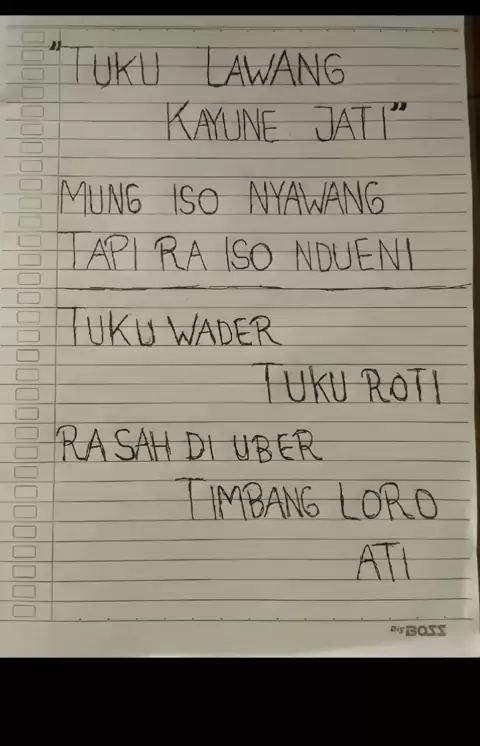 "TUKU LAWANG
KAYUNE JATI"
MUNG ISO NYAWANG
TAPI RA ISO NDUENI
TUKU WADER
TUKU ROTI
RASAH DI UBER
TIMBANG LORO
ATI
BIG BOSS